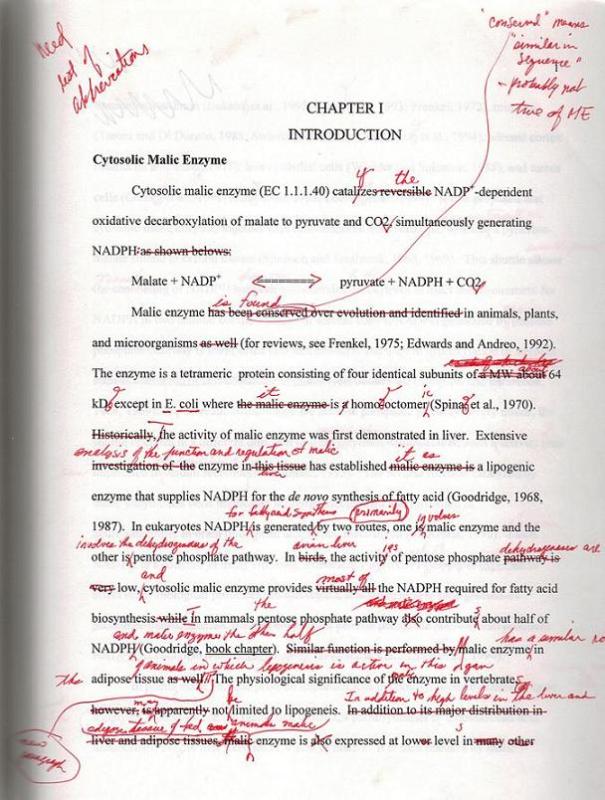 Need
list of
abbreviations
"conserved" means
"similar in
sequence"
- probably not
true of ME
CHAPTER I
INTRODUCTION
Cytosolic Malic Enzyme
if the
Cytosolic malic enzyme (EC 1.1.1.40) catalizes reversible NADP⁺-dependent
oxidative decarboxylation of malate to pyruvate and CO2, simultaneously generating
NADPH as shown belows:
Malate + NADP⁺ ⟺ pyruvate + NADPH + CO2
is found
Malic enzyme has been conserved over evolution and identified in animals, plants,
and microorganisms as well (for reviews, see Frenkel, 1975; Edwards and Andreo, 1992).
The enzyme is a tetrameric protein consisting of four identical subunits of a MW about 64
it ic
kD, except in E. coli where the malic enzyme is a homooctomer (Spina et al., 1970).
Historically, the activity of malic enzyme was first demonstrated in liver. Extensive
analysis of the function and regulation of malic it as
investigation of the enzyme in this tissue has established malic enzyme is a lipogenic
liver
enzyme that supplies NADPH for the de novo synthesis of fatty acid (Goodridge, 1968,
for fatty acid synthesis primarily involves
1987). In eukaryotes NADPH is generated by two routes, one is malic enzyme and the
involves the dehydrogenases of the avian liver dehydrogenases are
other is pentose phosphate pathway. In birds, the activity of pentose phosphate pathway is
and most of
very low, cytosolic malic enzyme provides virtually all the NADPH required for fatty acid
the
biosynthesis while in mammals pentose phosphate pathway also contribute about half of
and malic enzyme the other half has a similar
NADPH (Goodridge, book chapter). Similar function is performed by malic enzyme in
animals in which lipogenesis is active in this organ
the adipose tissue as well. The physiological significance of the enzyme in vertebrates
may be In addition to high levels in the liver and
however, is apparently not limited to lipogeneis. In addition to its major distribution in
adipose tissue of fed
liver and adipose tissues, malic enzyme is also expressed at lower level in many other
new
paragraph